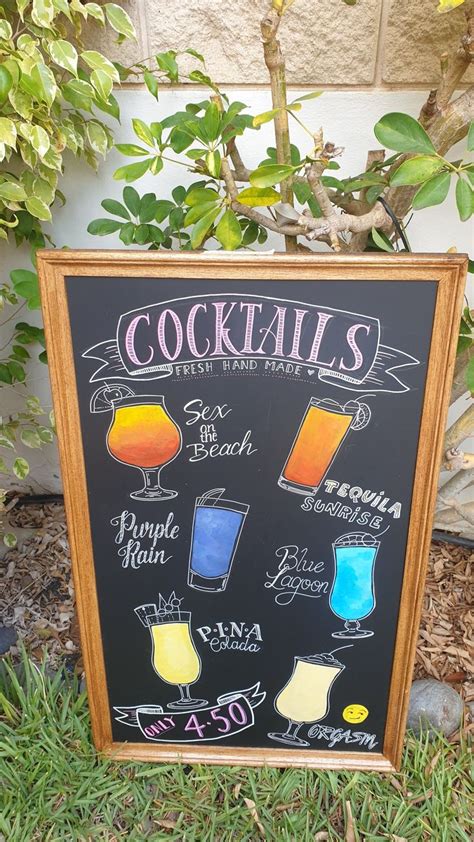 COCKTAILS
FRESH HAND MADE
Sex
on
the
Beach
TEQUILA
SUNRISE
Purple
Rain
Blue
Lagoon
PINA
Colada
ONLY 4.50
ORGASM